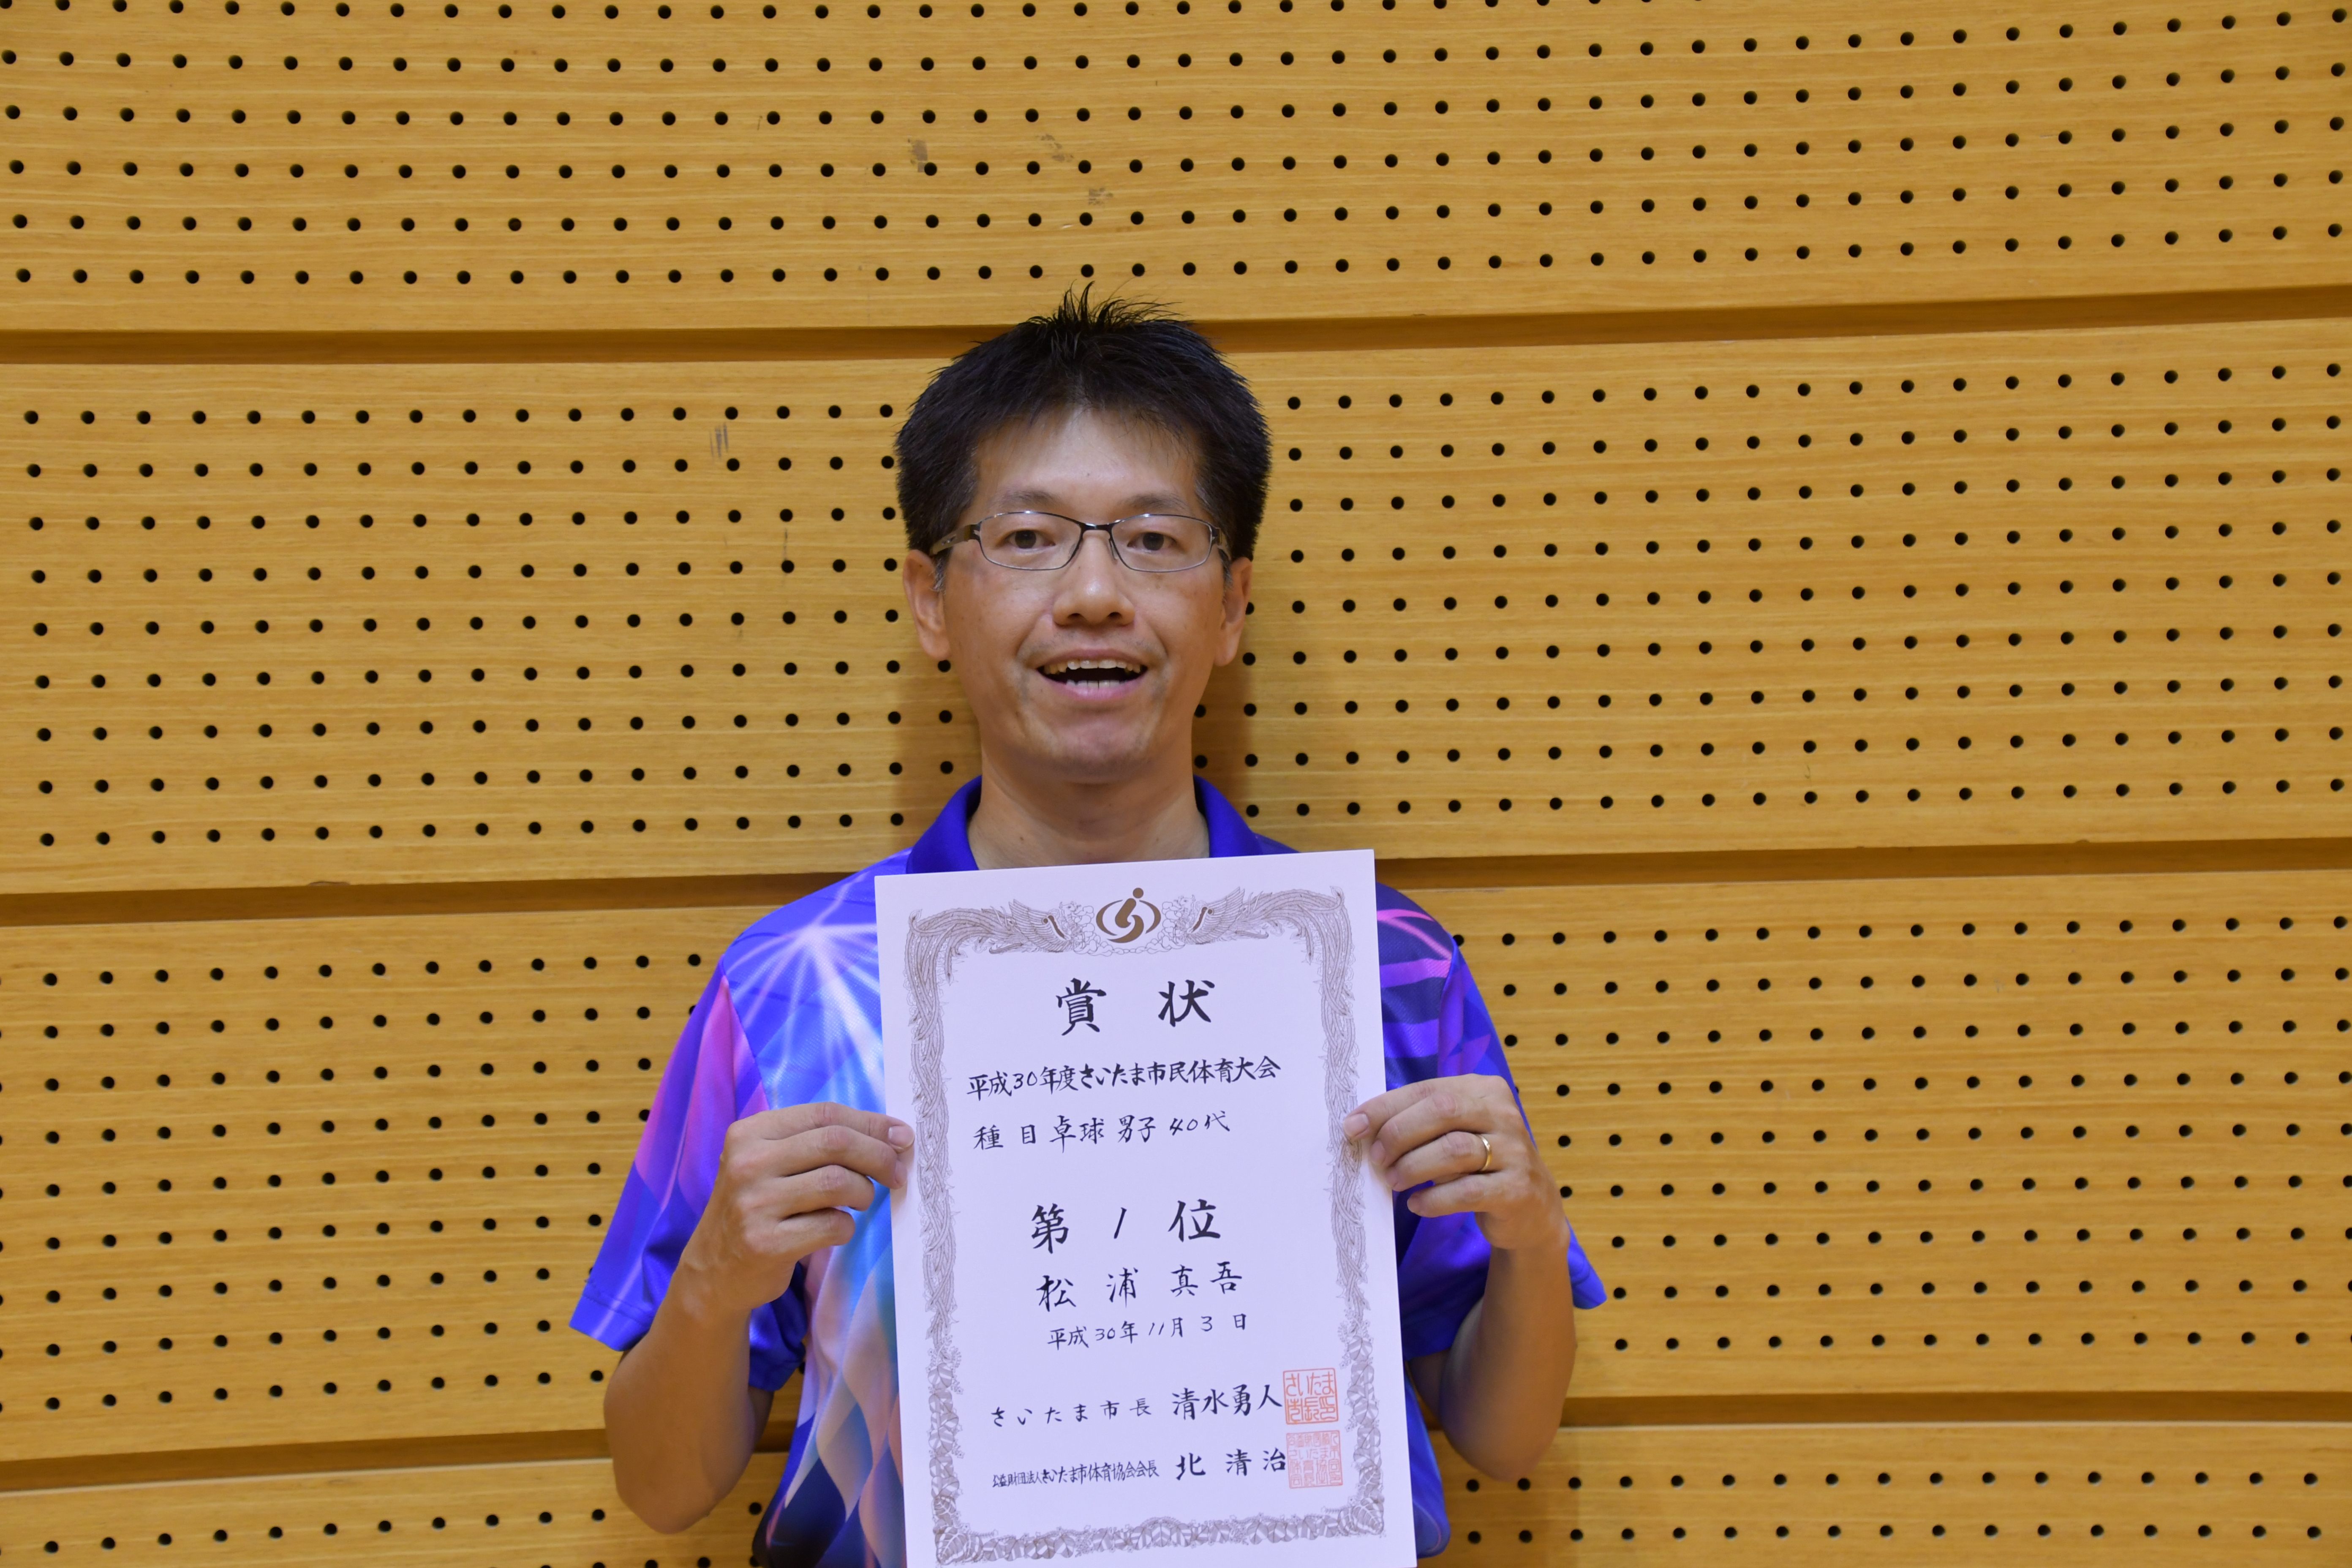 賞状
平成30年度さいたま市民体育大会
種目卓球男子40代
第1位
松浦真吾
平成30年11月3日
さいたま市長 清水勇人
公益財団法人さいたま市体育協会会長 北清治